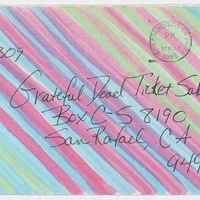 809
Grateful Dead Ticket Sal
Box C-S 8190
San Rafael, CA
949
PM